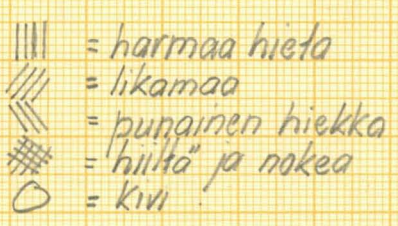 = harmaa hieta
= likamaa
= punainen hiekka
= hiiltä ja nokea
= kivi